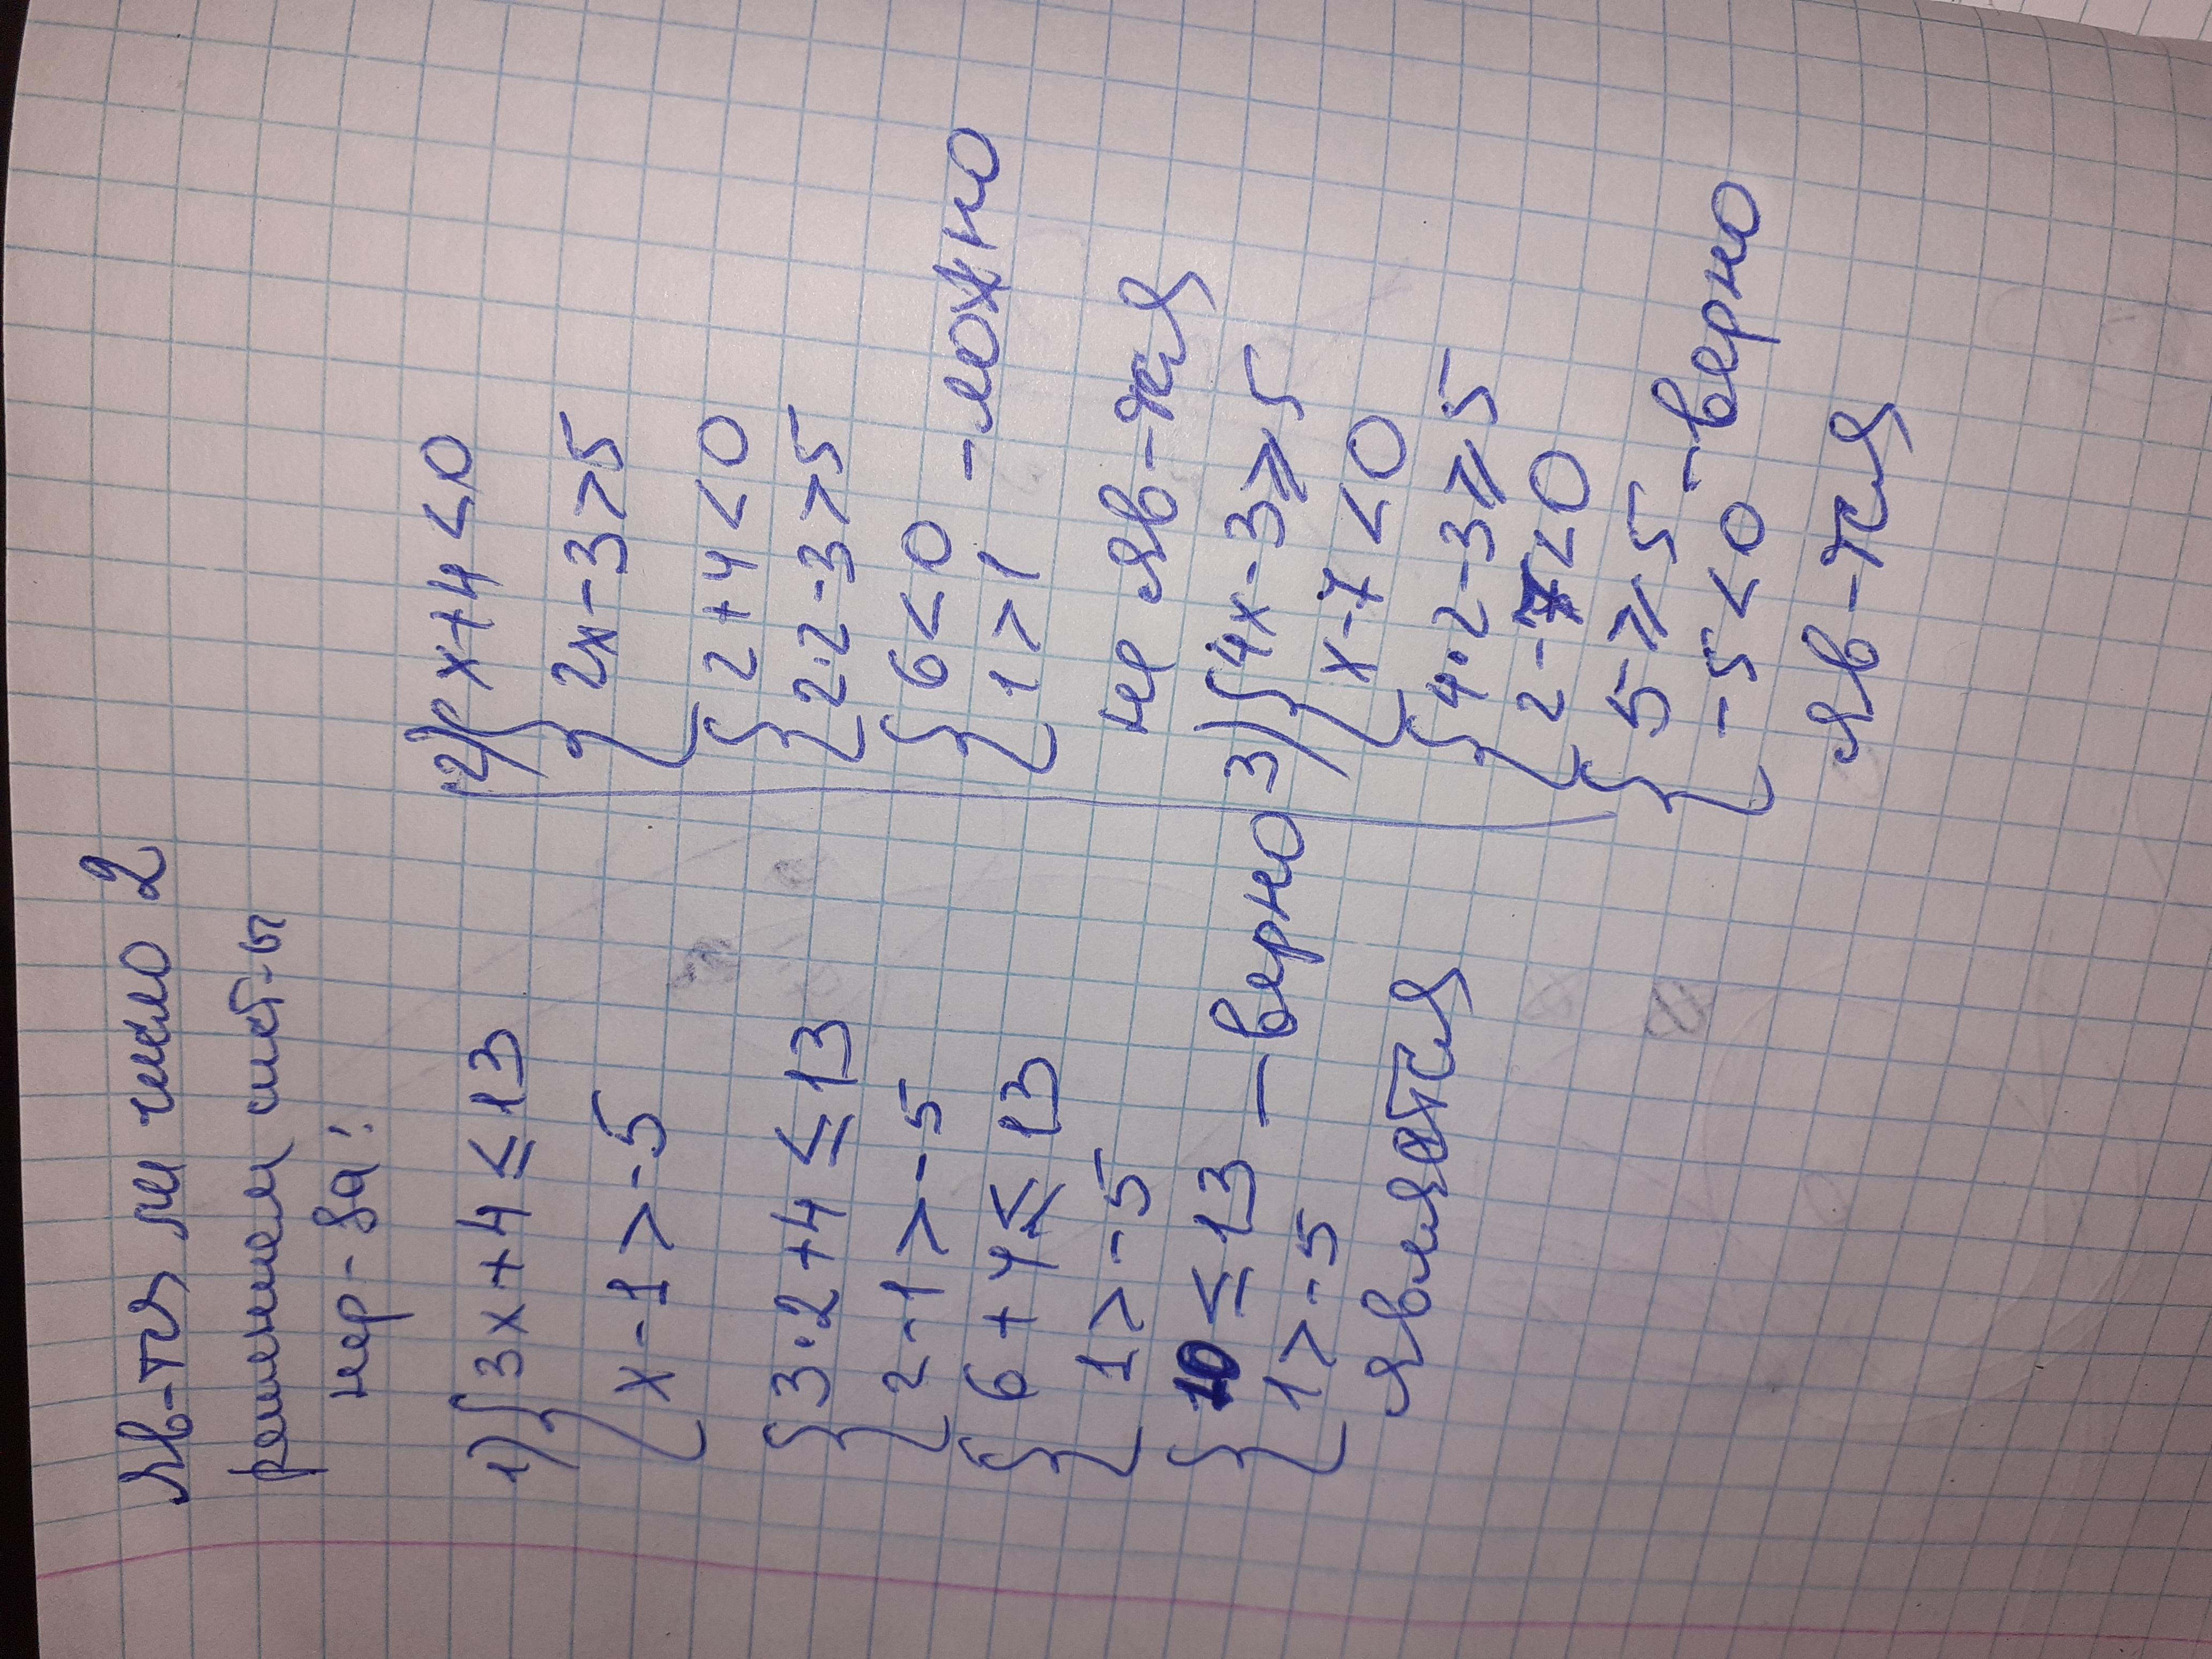 яв-тся ли число 2
решением сист-ы
нер-ва:
1) { 3x + 4 ≤ 13
x - 1 > -5
{ 3 · 2 + 4 ≤ 13
2 - 1 > -5
{ 6 + 4 ≤ 13
1 > -5
{ 10 ≤ 13 — верно
1 > -5
является
2) { x + 4 < 0
2x - 3 > 5
{ 2 + 4 < 0
2 · 2 - 3 > 5
{ 6 < 0 - ложно
1 > 1
не яв-тся
3) { 4x - 3 ⩾ 5
x - 7 < 0
{ 4 · 2 - 3 ⩾ 5
2 - 7 < 0
{ 5 ⩾ 5 - верно
-5 < 0
яв-тся